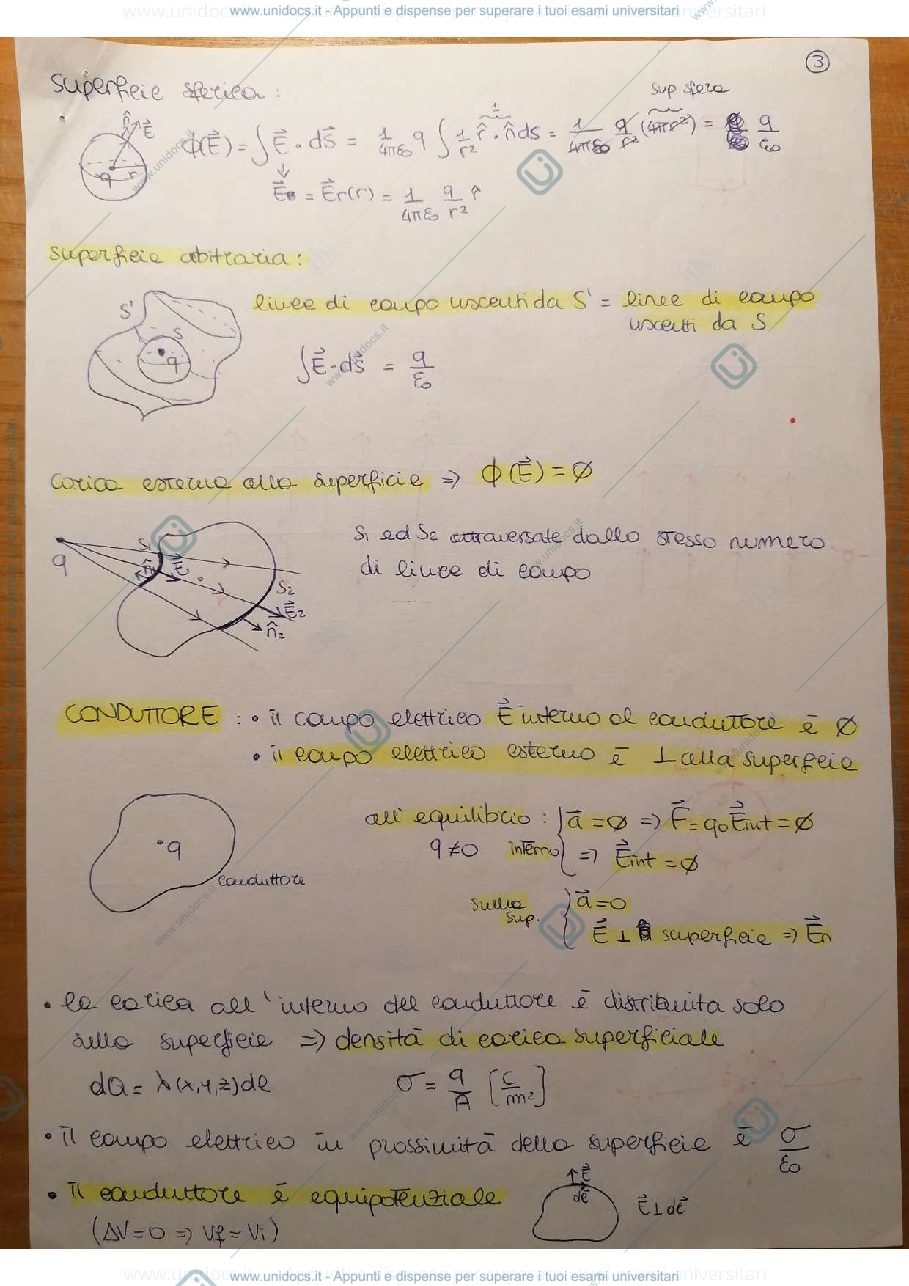 www.unidocs.it - Appunti e dispense per superare i tuoi esami universitari
3
Superficie sferica:
sup sfera
n̂ E⃗
q r
ϕ(E⃗) = ∫ E⃗ · ds⃗ = 1/4πε₀ q ∫ 1/r² r̂ · n̂ ds = 1/4πε₀ q/r² (4πr²) = q/ε₀
1
E⃗ = E⃗r(r) = 1/4πε₀ q/r² r̂
Superficie arbitraria:
S' S q
linee di campo uscenti da S' = linee di campo
uscenti da S
∫E⃗·ds⃗ = q/ε₀
Carica esterna alla superficie => ϕ(E⃗) = Ø
q S₁ S₂ E⃗₂ n̂₂
S₁ ed S₂ attraversate dallo stesso numero
di linee di campo
CONDUTTORE : • il campo elettrico E⃗ interno al conduttore è Ø
• il campo elettrico esterno è ⊥ alla superficie
all'equilibrio : { a⃗ = Ø => F⃗ = q₀E⃗int = Ø
q≠0 interno => E⃗int = Ø
q
conduttore
sulla sup. { a⃗ = 0
E⃗ ⊥ superficie => E⃗n
• la carica all'interno del conduttore è distribuita solo
sulla superficie => densità di carica superficiale
dQ = λ(x,y,z)dl σ = q/A [C/m²]
• il campo elettrico in prossimità della superficie è σ/ε₀
• Il conduttore è equipotenziale
(ΔV = 0 => Vf = Vi)
E⃗ dl⃗ E⃗ ⊥ dl⃗
www.unidocs.it - Appunti e dispense per superare i tuoi esami universitari